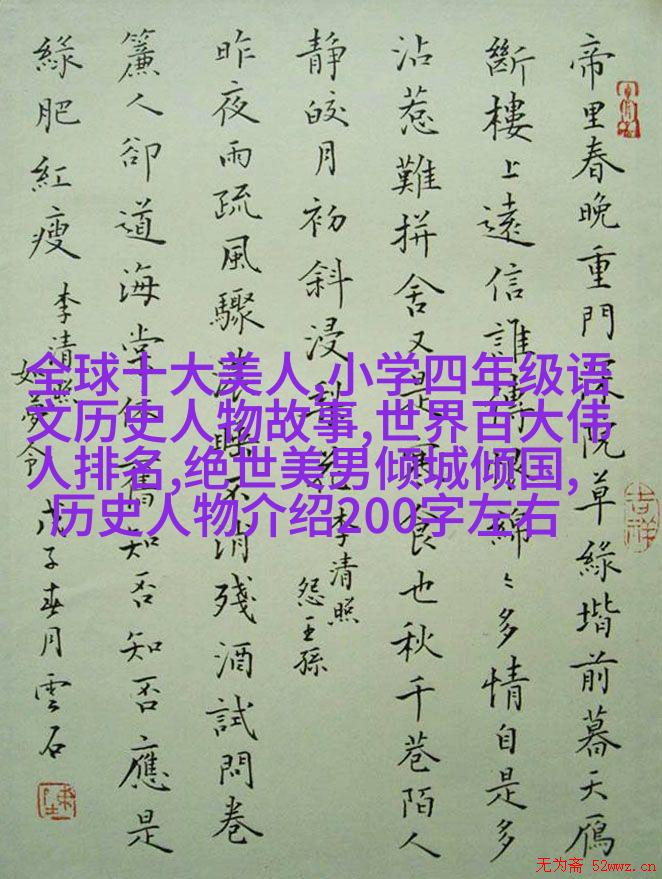 帝里春晚重門深院草綠堦前暮天鴈
斷樓上遠信誰傳恨綿〻多情自是多
沾惹難拼舍又是寒食也秋千巷陌人
靜皎月初斜浸梨花 李清照
怨王孫
昨夜雨疏風驟濃睡不消殘酒試問卷
簾人卻道海棠依舊知否知否應是
綠肥紅瘦 李清照
如夢令 戊子春月雲石
吉祥
全球十大美人,小学四年级语
文历史人物故事,世界百大伟
人排名,绝世美男倾城倾国,
历史人物介绍200字左右
无为斋 52wwz.cn